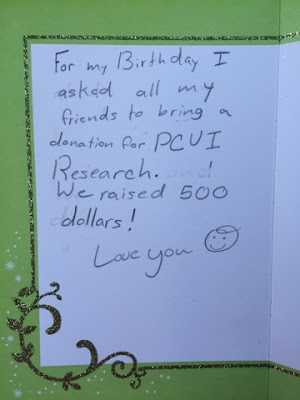 For my Birthday I
asked all my
friends to bring a
donation for PCUI
Research.
We raised 500
dollars!
Love you